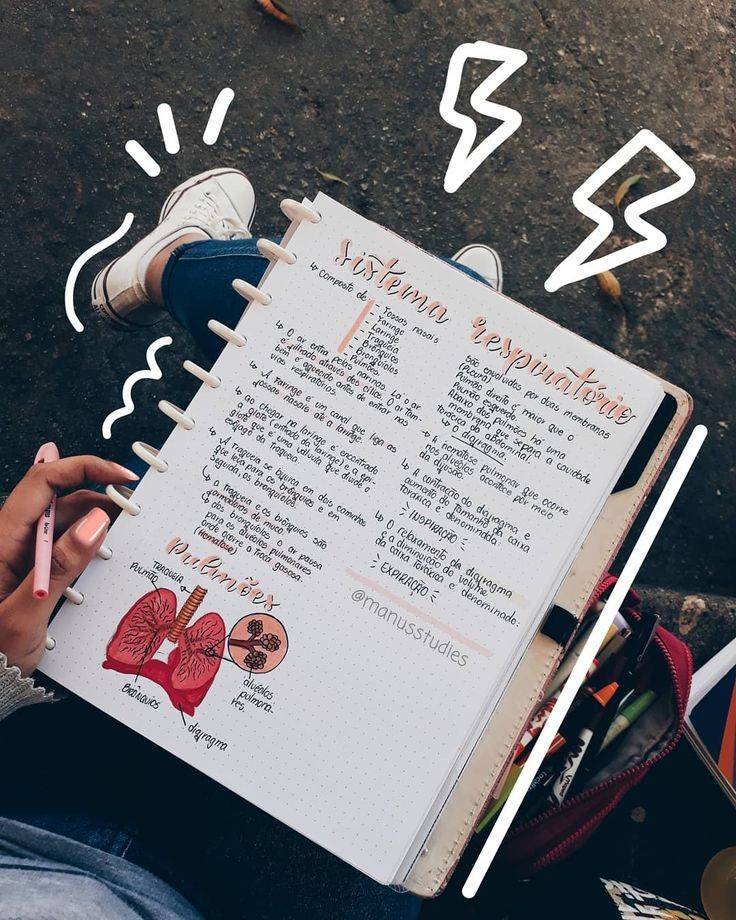 Sistema respiratório
↳ Composto de
- Fossas nasais
- Faringe
- Laringe
- Traqueia
- Brônquios
- Bronquíolos
- Pulmões
↳ O ar entra pelas narinas. Lá o ar
é filtrado através dos cílios. O ar tam-
bém é aquecido antes de entrar nas
vias respiratórias.
↳ A faringe é um canal que liga as
fossas nasais até a laringe.
↳ ao chegar na laringe é encontrado
a glote (entrada da laringe) e a epi-
glote que é uma válvula que divide o
esôfago da traqueia.
↳ A traqueia se bifurca em dois caminhos
que leva para os brônquios e em
seguida, os bronquíolos.
↳ a traqueia e os brônquios são
de muco.
↳ dos bronquíolos o ar passa
para os alvéolos pulmonares
onde ocorre a troca gasosa.
(hematose)
Pulmões
TRAQUEIA
PULMÃO
BRÔNQUIOS
diafragma
alvéolos
pulmona-
res.
São envolvidos por duas membranas
(Pleura)
Pulmão direito é maior que o
Pulmão esquerdo
Abaixo dos pulmões há uma
membrana que separa a cavidade
torácica da abdominal:
↳ O diafragma.
↳ A hematose pulmonar que ocorre
nos alvéolos acontece por meio
da difusão.
↳ A contração do diafragma e
aumento do tamanho da caixa
torácica é denominada:
INSPIRAÇÃO
↳ O relaxamento do diafragma
e a diminuição do volume
da caixa torácica é denominado:
EXPIRAÇÃO
@manusstudies